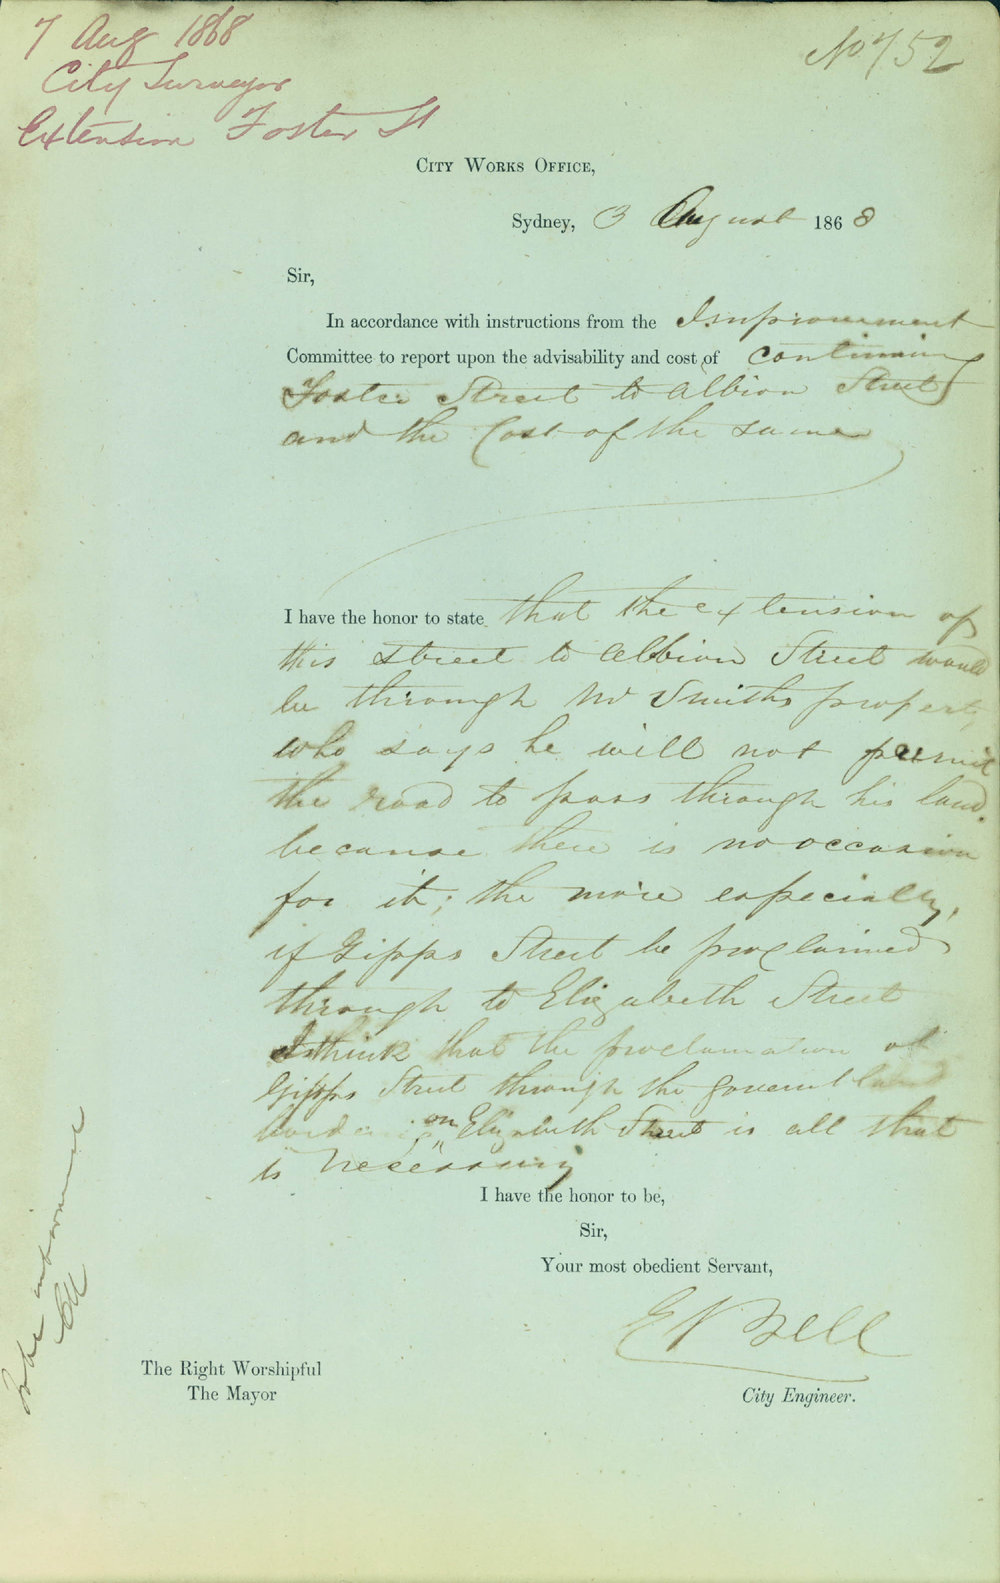 7 Aug 1868
City Surveyor
Extension Foster St
No 752
City Works Office,
Sydney, 3 August 1868
Sir,
In accordance with instructions from the Improvement
Committee to report upon the advisability and cost of continuing
Foster Street to Albion Street
and the Cost of the same
I have the honor to state that the extension of
this street to Albion Street would
be through Mr Smiths property
who says he will not permit
the road to pass through his land.
because there is no occasion
for it; the more especially,
if Gipps Street be proclaimed
through to Elizabeth Street
I think that the proclamation of
Gipps Street through the Goverment land
on Elizabeth Street is all that
is necessary
I have the honor to be,
Sir,
Your most obedient Servant,
E Bell
City Engineer.
The Right Worshipful
The Mayor